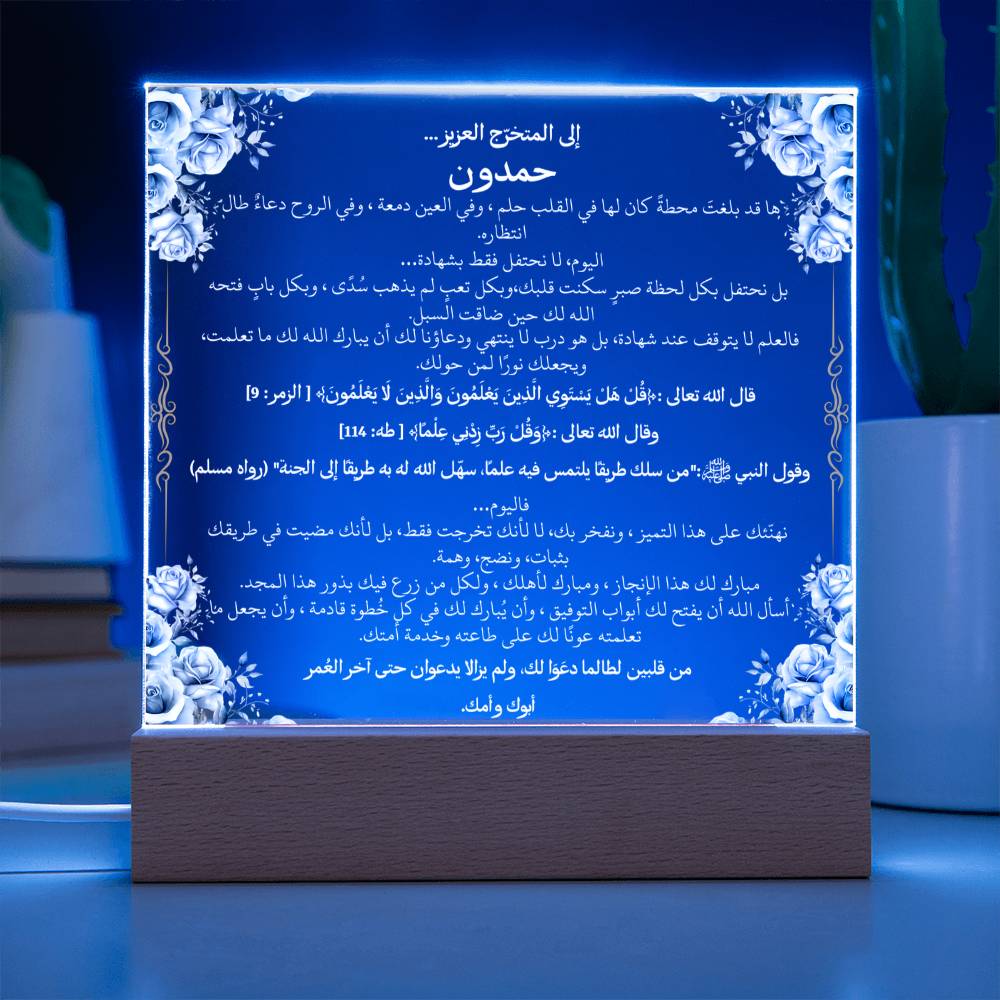 إلى المتخرّج العزيز...
حمدون
ها قد بلغتَ محطةً كان لها في القلب حلم ، وفي العين دمعة ، وفي الروح دعاءٌ طال
انتظاره.
اليوم، لا نحتفل فقط بشهادة...
بل نحتفل بكل لحظة صبرٍ سكنت قلبك،وبكل تعبٍ لم يذهب سُدًى ، وبكل بابٍ فتحه
الله لك حين ضاقت السبل.
فالعلم لا يتوقف عند شهادة، بل هو درب لا ينتهي ودعاؤنا لك أن يبارك الله لك ما تعلمت،
ويجعلك نورًا لمن حولك.
قال الله تعالى :﴿قُلْ هَلْ يَسْتَوِي الَّذِينَ يَعْلَمُونَ وَالَّذِينَ لَا يَعْلَمُونَ﴾ [ الزمر: 9]
وقال الله تعالى :﴿وَقُلْ رَبِّ زِدْنِي عِلْمًا﴾ [ طه: 114]
وقول النبي ﷺ:"من سلك طريقًا يلتمس فيه علمًا، سهّل الله له به طريقًا إلى الجنة" (رواه مسلم)
فاليوم...
نهنّئك على هذا التميز ، ونفخر بك، لا لأنك تخرجت فقط، بل لأنك مضيت في طريقك
بثبات، ونضج، وهمة.
مبارك لك هذا الإنجاز ، ومبارك لأهلك ، ولكل من زرع فيك بذور هذا المجد.
أسأل الله أن يفتح لك أبواب التوفيق ، وأن يُبارك لك في كل خُطوة قادمة ، وأن يجعل ما
تعلمته عونًا لك على طاعته وخدمة أمتك.
من قلبين لطالما دعَوَا لك، ولم يزالا يدعوان حتى آخر العُمر
أبوك وأمك.